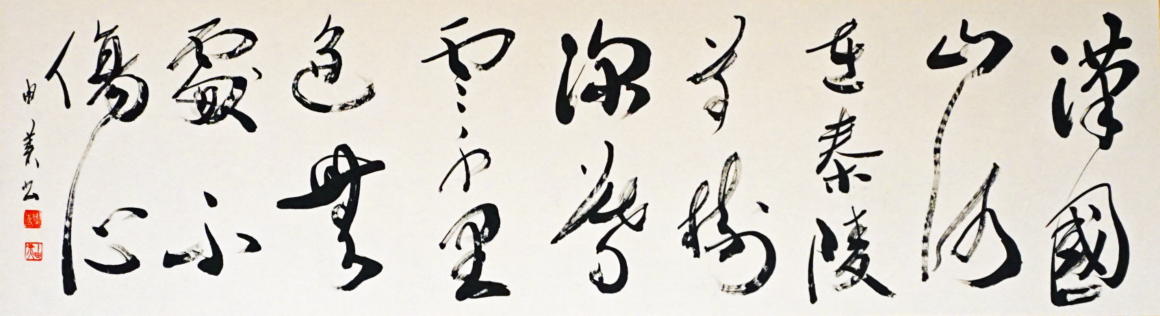 漢國
山河
在秦陵
草樹
深暮
雲千里
色無
處不
傷心
由美